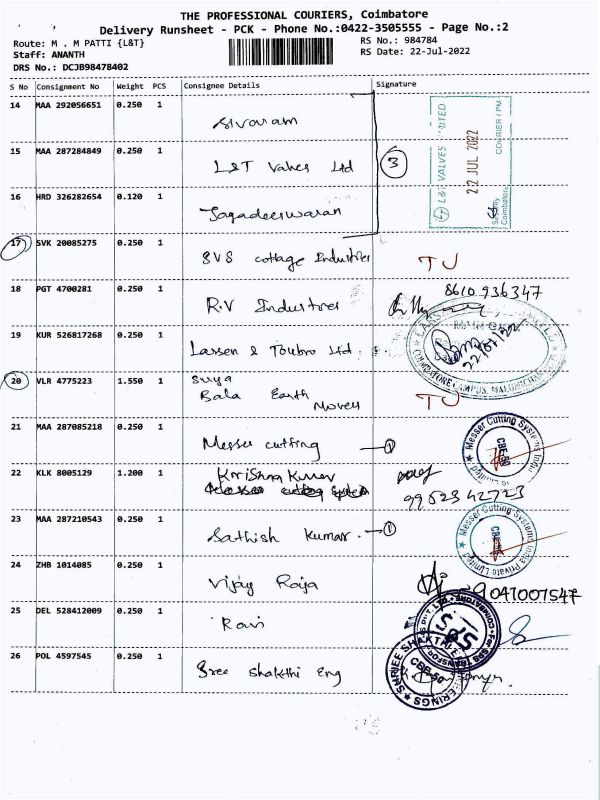 THE PROFESSIONAL COURIERS, Coimbatore
Delivery Runsheet - PCK - Phone No.:0422-3505555 - Page No.:2
Route: M . M PATTI {L&T}
RS No.: 984784
Staff: ANANTH
RS Date: 22-Jul-2022
DRS No.: DCJB98478402
S No Consignment No Weight PCS Consignee Details Signature
14 MAA 292056651 0.250 1
Sivaram
L&T VALVES LIMITED
22 JUL 2022
COURIER / PM
Coimbatore
15 MAA 287284849 0.250 1
L&T Valves Ltd
3
16 HRD 326282654 0.120 1
Jagadeeswaran
17 SVK 20085275 0.250 1
SVS cottage Industries TJ
18 PGT 4700281 0.250 1
8610 936347
R.V Industries
19 KUR 526817268 0.250 1
Larsen & Toubro Ltd.
22/07/22
COIMBATORE CAMPUS, MALUMICHAMPATTI
20 VLR 4775223 1.550 1
Surya
Bala Earth
Movers
TJ
21 MAA 287085218 0.250 1
Messer cutting 1
Messer Cutting Systems India
CBE-50
22 KLK 8005129 1.200 1
Krishna Kumar
99523 42723
23 MAA 287210543 0.250 1
Sathish Kumar. 1
Messer Cutting Systems India Private Limited
24 ZHB 1014085 0.250 1
Vijay Raja
9041007547
25 DEL 528412009 0.250 1
Ravi
SPS
26 POL 4597545 0.250 1
Sree Shakthi Eng
CBE-50